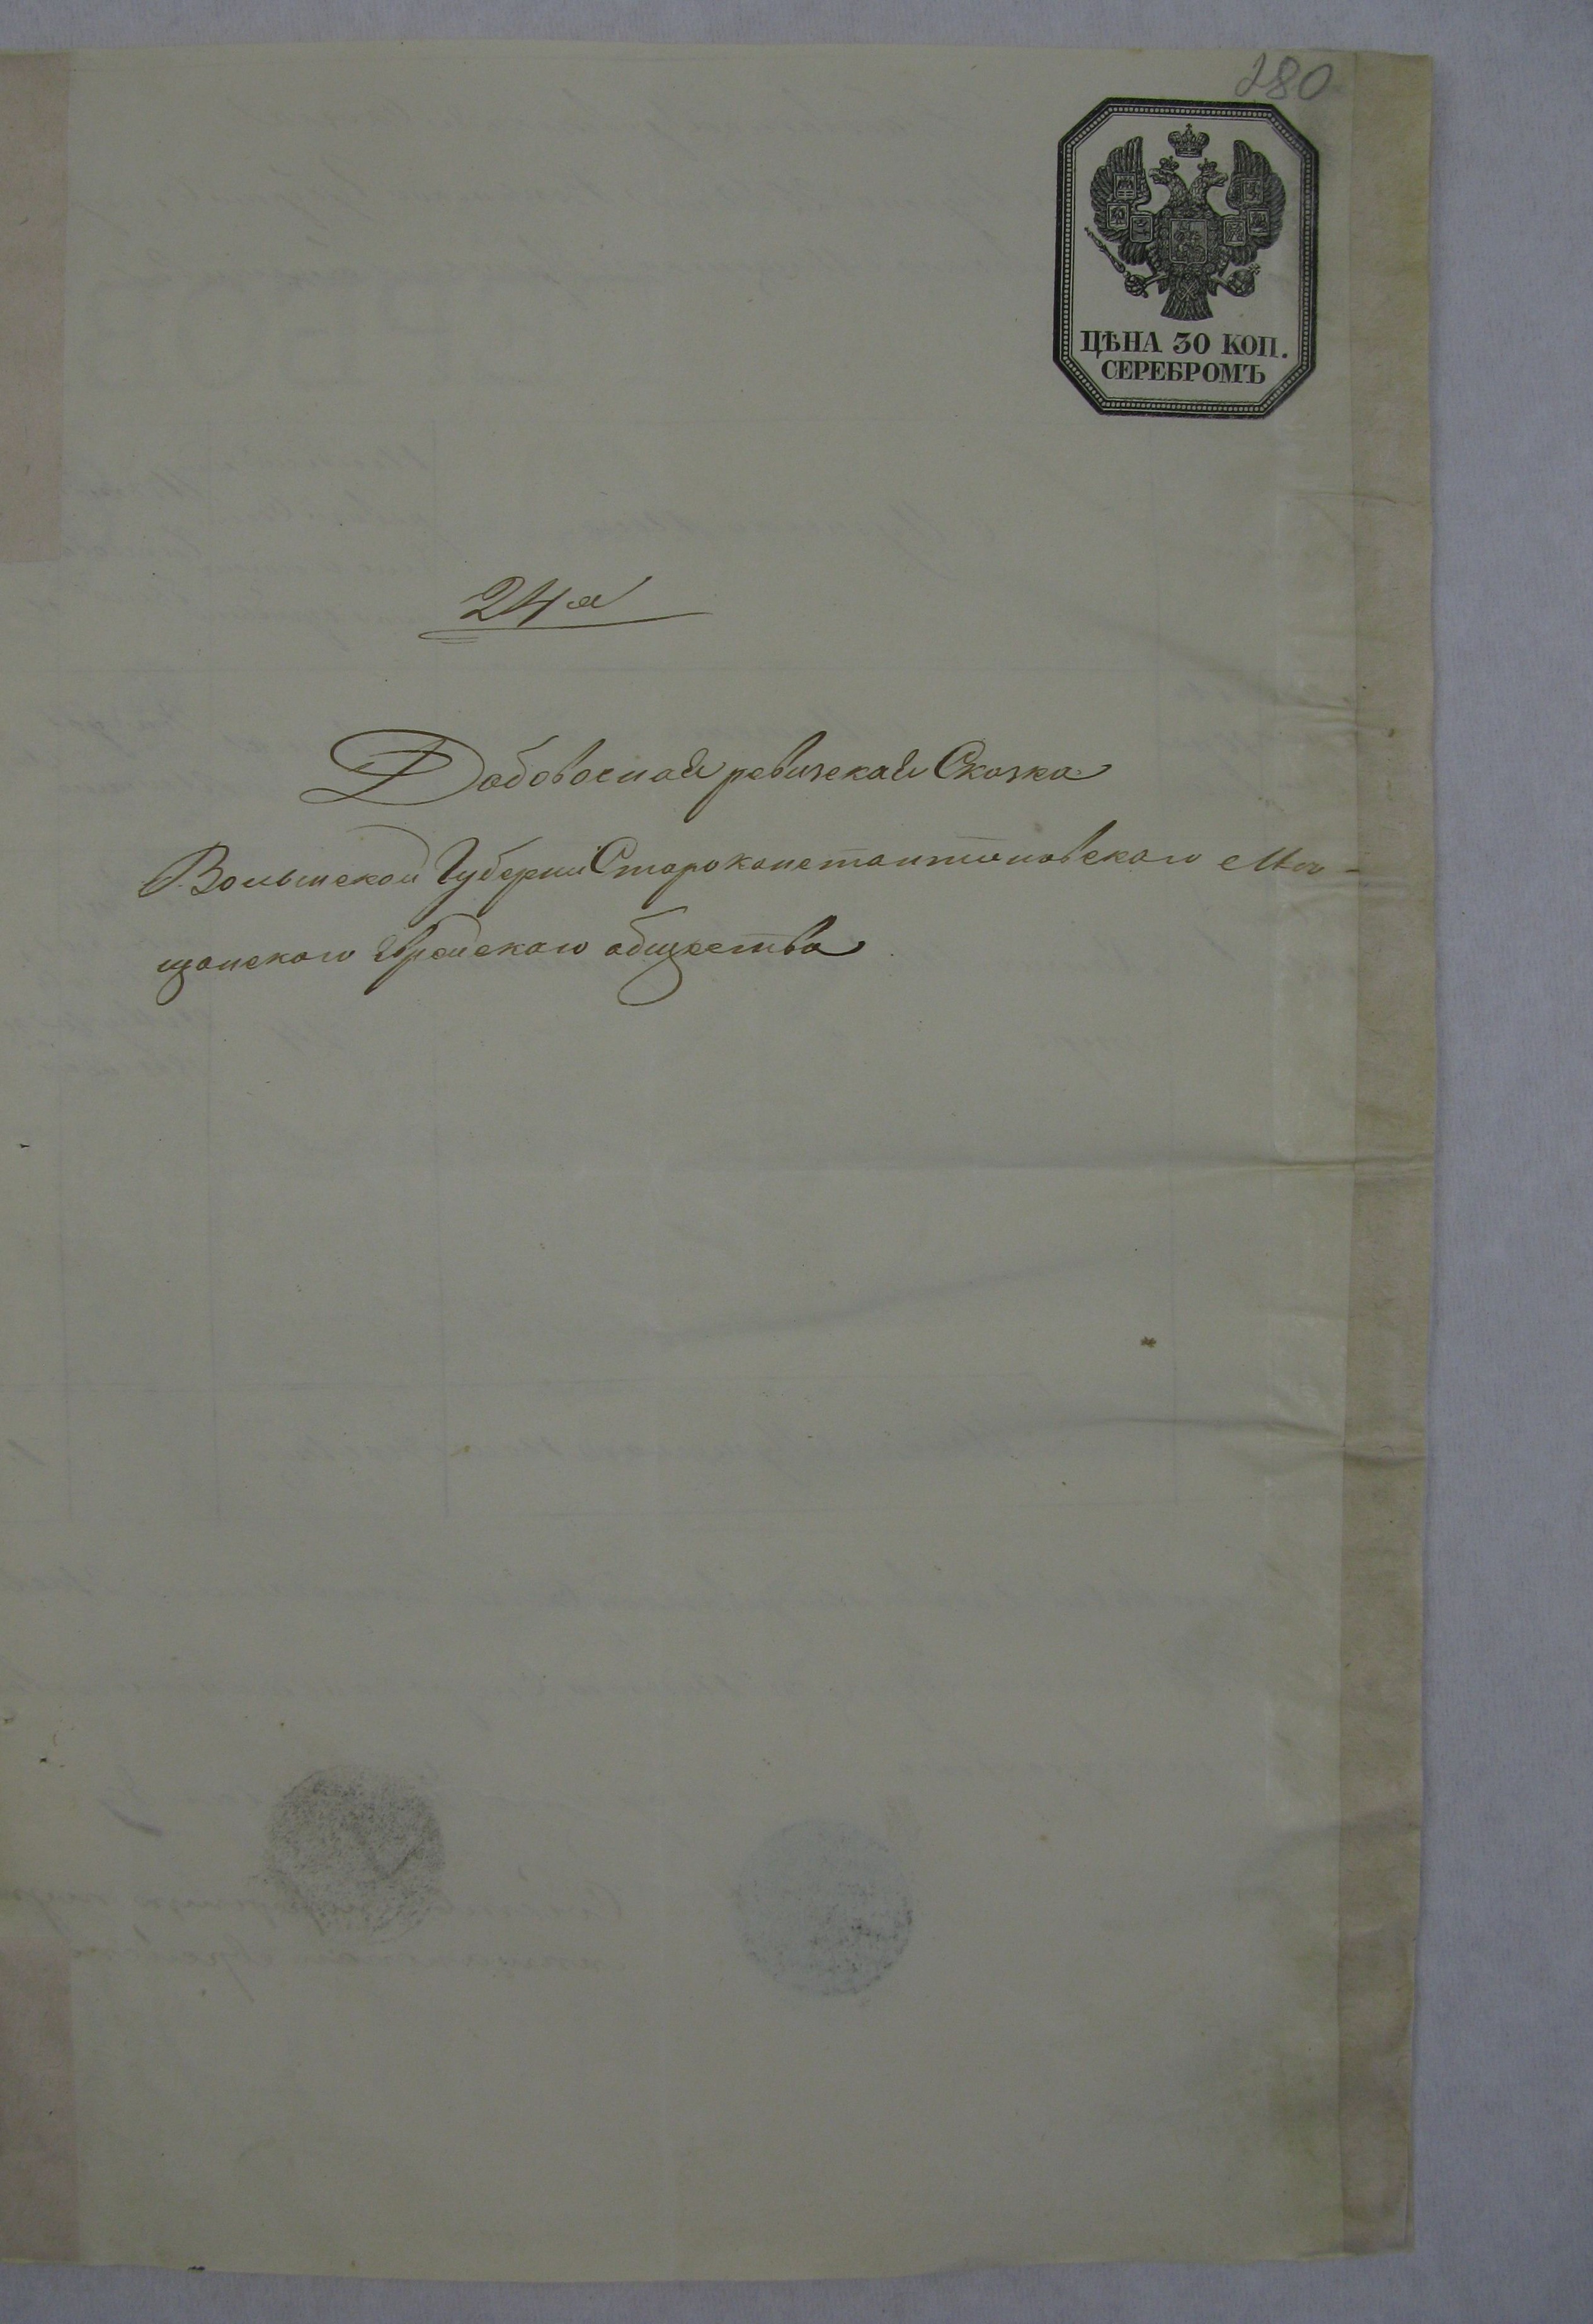 280
ЦѢНА 30 КОП.
СЕРЕБРОМЪ
24ая
Добовочная ревизская Сказка
Волынской Губернии Староконстантиновскаго Мѣ-
щанскаго Еврейскаго общества